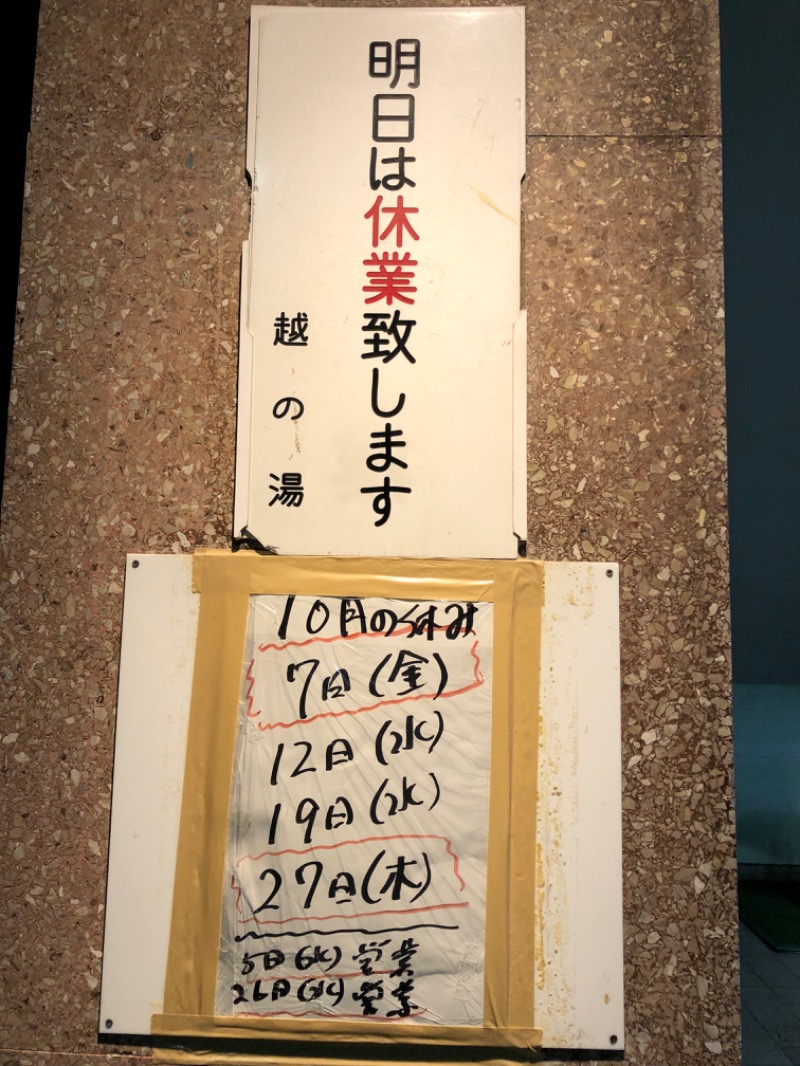 明日は休業致します
越の湯
10月の休み
7日(金)
12日(水)
19日(水)
27日(木)
5日(水)営業
26日(水)営業